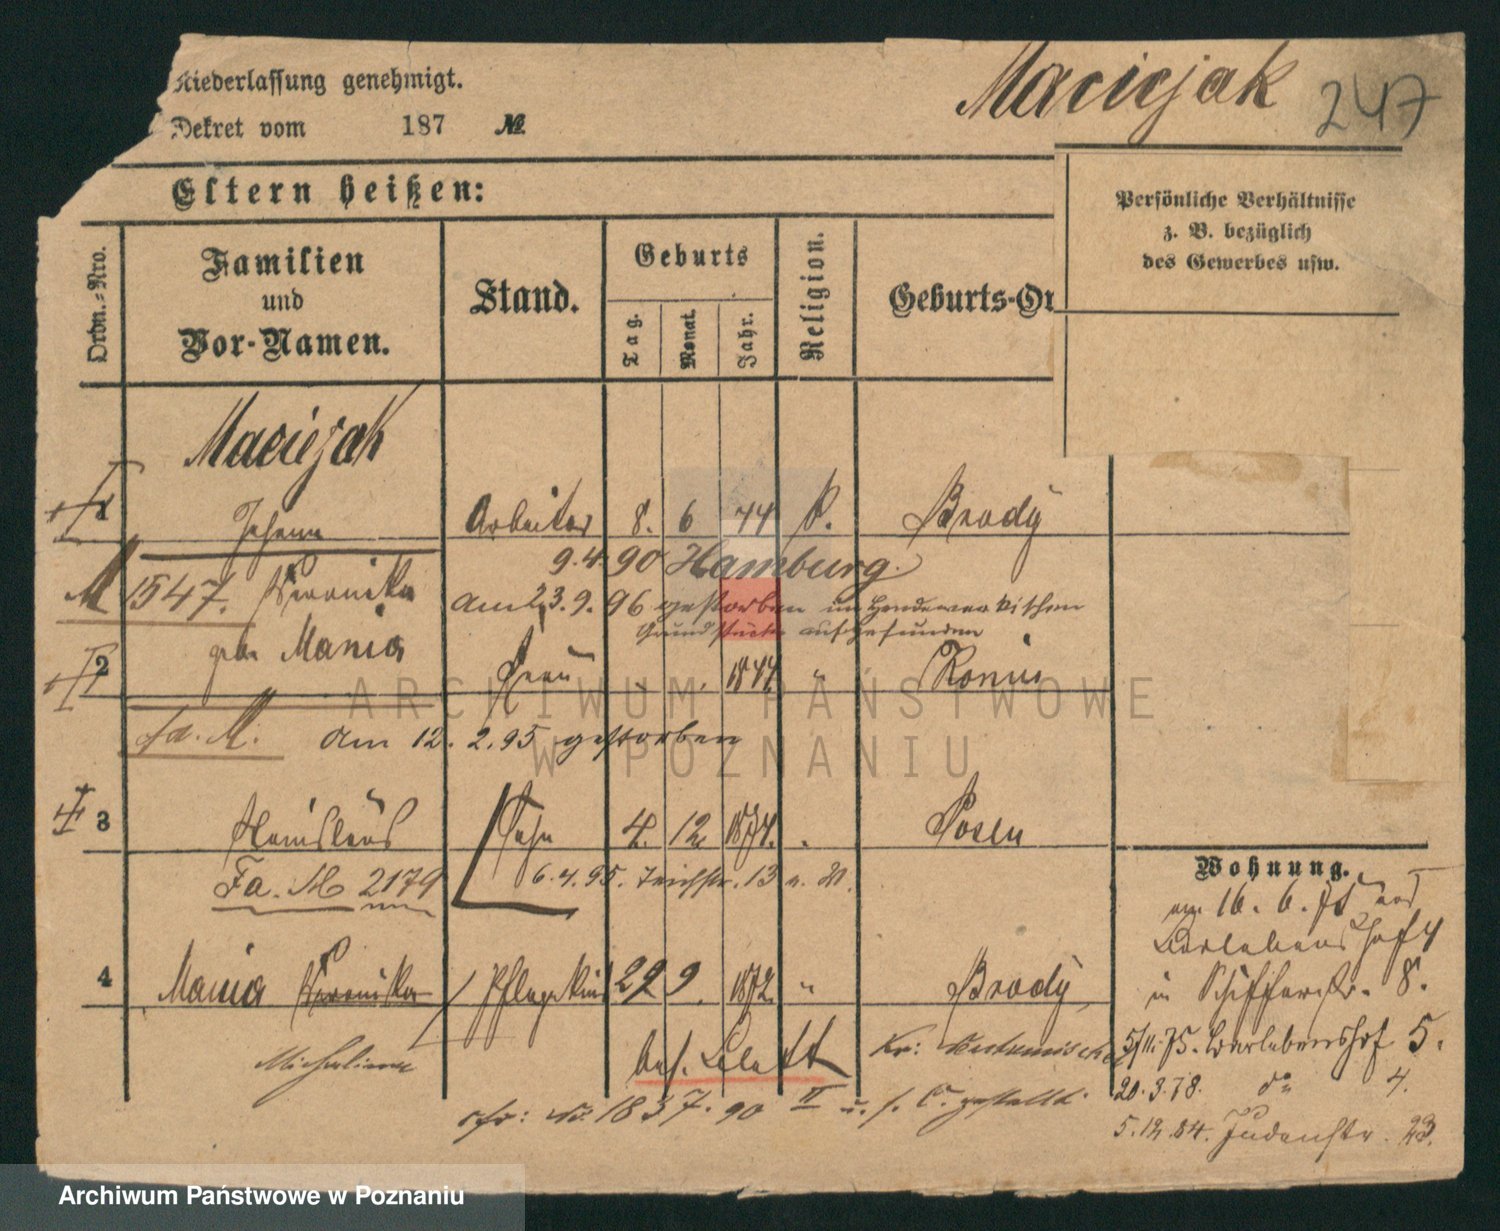 Niederlassung genehmigt.
Dekret vom 187 №
Maciejak 247
Eltern heißen:
Persönliche Verhältnisse
z. B. bezüglich
des Gewerbes usw.
Ordn.-Nro.
Familien
und
Vor-Namen.
Stand.
Geburts
Tag.
Monat.
Jahr.
Religion.
Geburts-Or
Maciejak
1 Johann Arbeiter 8. 6 44 k. Brody
9.4.90 Hamburg.
M 1547. Veronika am 23.9.96 gestorben im
Grundstücke aufgefunden
geb. Mania
2 Frau 1844. " Konin
fa. M. am 12.2.95 gestorben
3 Stanislaus Sohn 4. 12 1874. " Posen
Fa. M 2179 6.4.95. Teichstr. 13
4 Mania Veronika Pflegekind 22 9. 1872. " Brody,
Michalina
bes. Blatt
Kr:
No. 1837.90 II u. s. C. gestellt.
Wohnung.
am 16. 6. 75 aus
Berlebenshof 4
in Schifferstr. 8.
5/11.75. Berlebenshof 5.
20.3.78. do 4.
5.12.84. Judenstr. 23.
ARCHIWUM PAŃSTWOWE
W POZNANIU
Archiwum Państwowe w Poznaniu